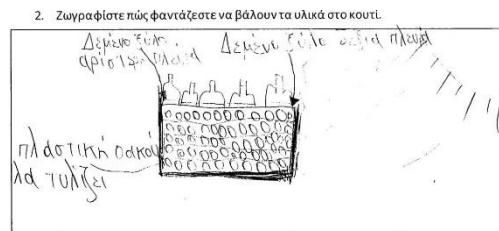 2. Ζωγραφίστε πώς φαντάζεστε να βάλουν τα υλικά στο κουτί.
Δεμένο ξύλο αριστερή πλευρά
Δεμένο ξύλο δεξιά πλευρά
πλαστική σακούλα τυλίζει